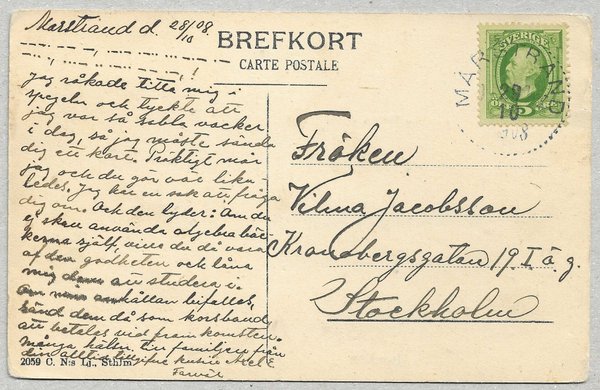 Marstrand d. 28/10 08.
BREFKORT
CARTE POSTALE
SVERIGE
MARSTRAND
10
Jag råkade titta mig i
spegeln och tyckte att
jag var så sabla vacker
i dag, så jag måste sända
dig ett kort. Präktigt mår
jag och du gör väl lika-
ledes. Jag har en sak att fråga
dig om. Och den lyder: Om du
ej skall använda algebraböc
kerna själf, vill du då vara
af den godheten och låna
mig dem att studera i.
Om min anhållan bifalles,
sänd dem då som korsband
att betalas vid framkomsten.
många hälsn. till familjen från
din alltid tillgifne kusin Axel
Farväl
Fröken
Vilma Jacobsson
Kronobergsgatan 19. I ö. g.
Stockholm
2059 C. N:s Lj., Sthlm